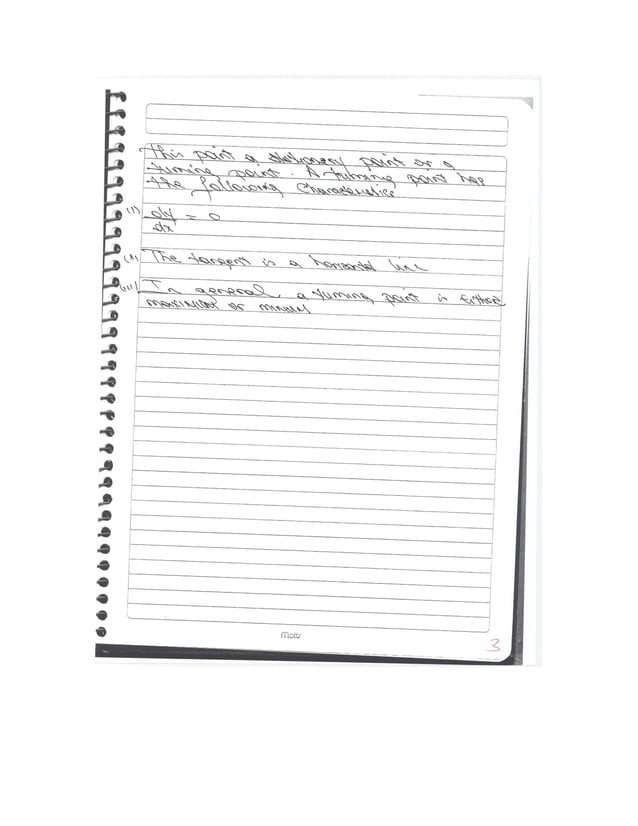 This point a stationary point or a
turning point. A turning point has
the following characteristics
(i) dy = 0
dx
(ii) The tangent is a horizontal line
(iii) In general, a turning point is either
maximum or minimum
3